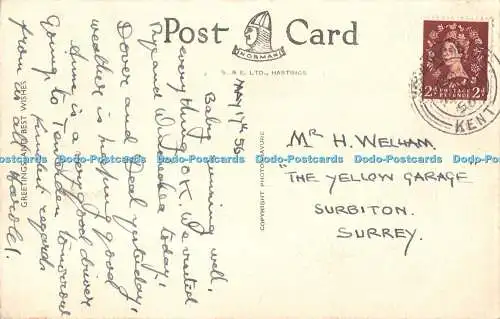 Post Card
NORMAN
S. & E. LTD., HASTINGS
GREETINGS AND BEST WISHES
COPYRIGHT PHOTOGRAVURE
MAY 17th 56
Baby running well,
everything O.K. We visited
Rye and Winchelsea today,
Dover and Deal yesterday,
weather is keeping good,
Anne is a very good driver
Going to Tenterden tomorrow
Kindest regards
from us all Harold.
MR H. WELHAM,
THE YELLOW GARAGE
SURBITON.
SURREY.
2d POSTAGE REVENUE 2d
KENT
Dodo-Postcards Dodo-Postcards Dodo-Postcards Dodo-Postcards Dodo-Postcards Dodo-Postcards